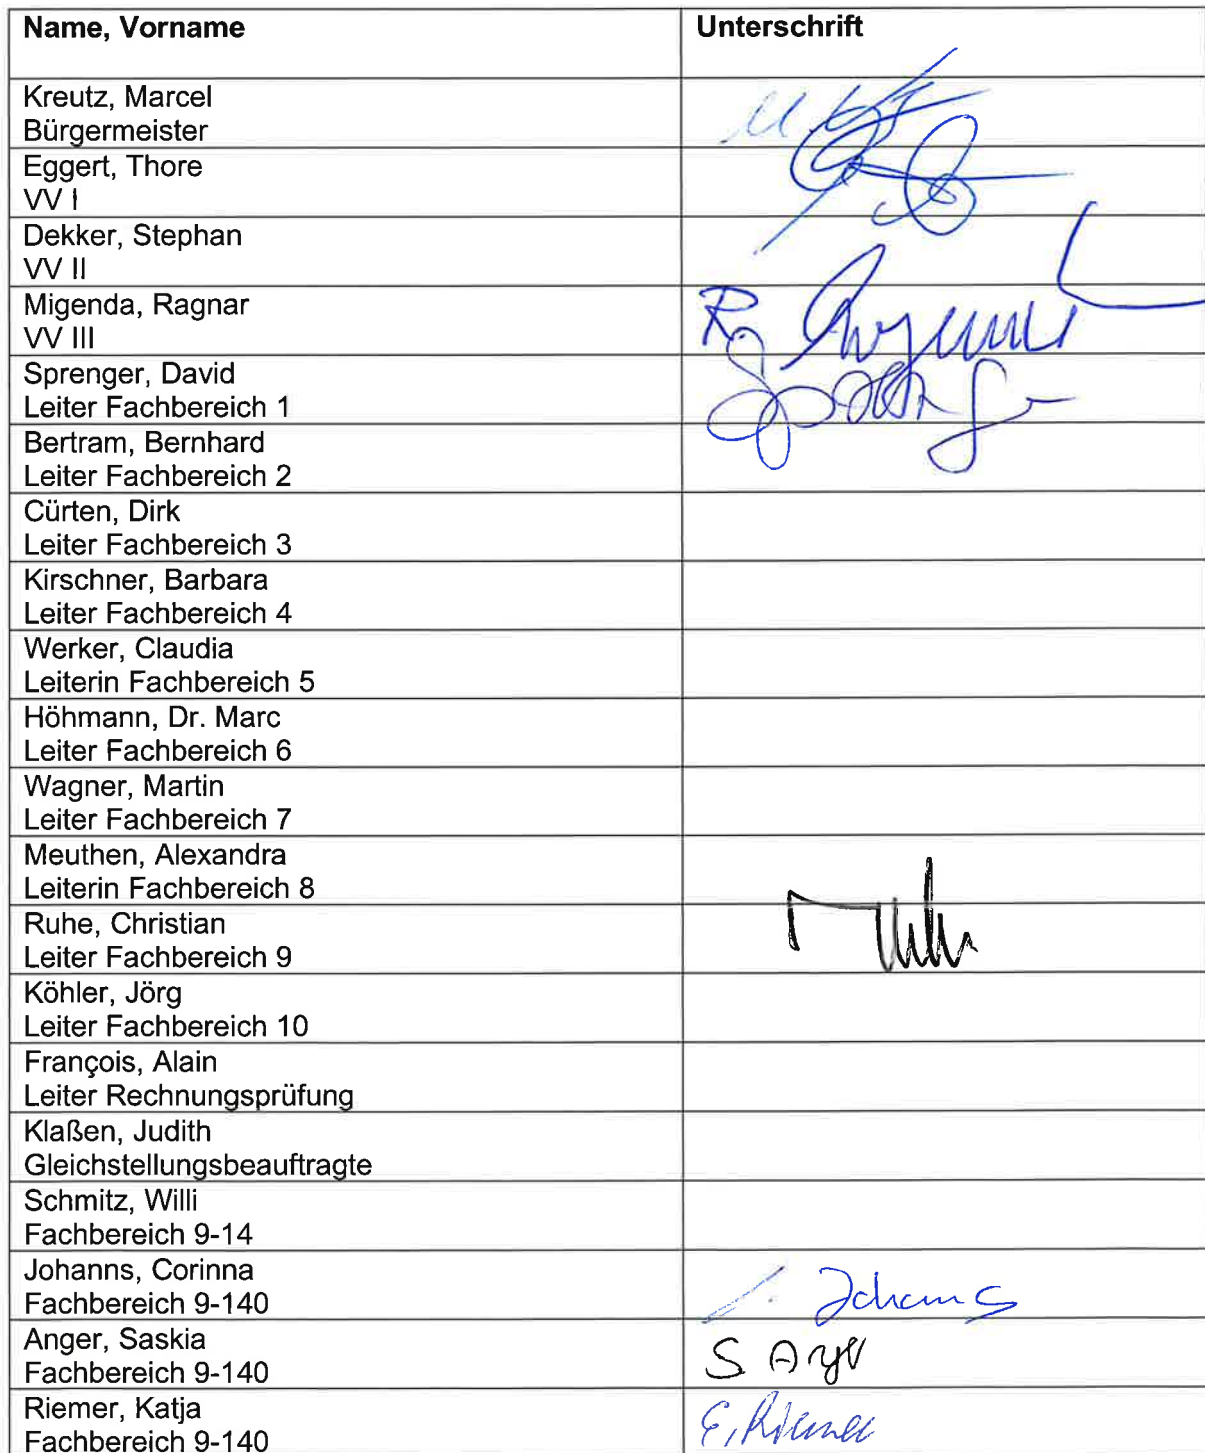 Name, Vorname Unterschrift
Kreutz, Marcel
Bürgermeister
Eggert, Thore
VV I
Dekker, Stephan
VV II
Migenda, Ragnar
VV III
Sprenger, David
Leiter Fachbereich 1
Bertram, Bernhard
Leiter Fachbereich 2
Cürten, Dirk
Leiter Fachbereich 3
Kirschner, Barbara
Leiter Fachbereich 4
Werker, Claudia
Leiterin Fachbereich 5
Höhmann, Dr. Marc
Leiter Fachbereich 6
Wagner, Martin
Leiter Fachbereich 7
Meuthen, Alexandra
Leiterin Fachbereich 8
Ruhe, Christian
Leiter Fachbereich 9
Köhler, Jörg
Leiter Fachbereich 10
François, Alain
Leiter Rechnungsprüfung
Klaßen, Judith
Gleichstellungsbeauftragte
Schmitz, Willi
Fachbereich 9-14
Johanns, Corinna
Fachbereich 9-140
Anger, Saskia
Fachbereich 9-140
Riemer, Katja
Fachbereich 9-140